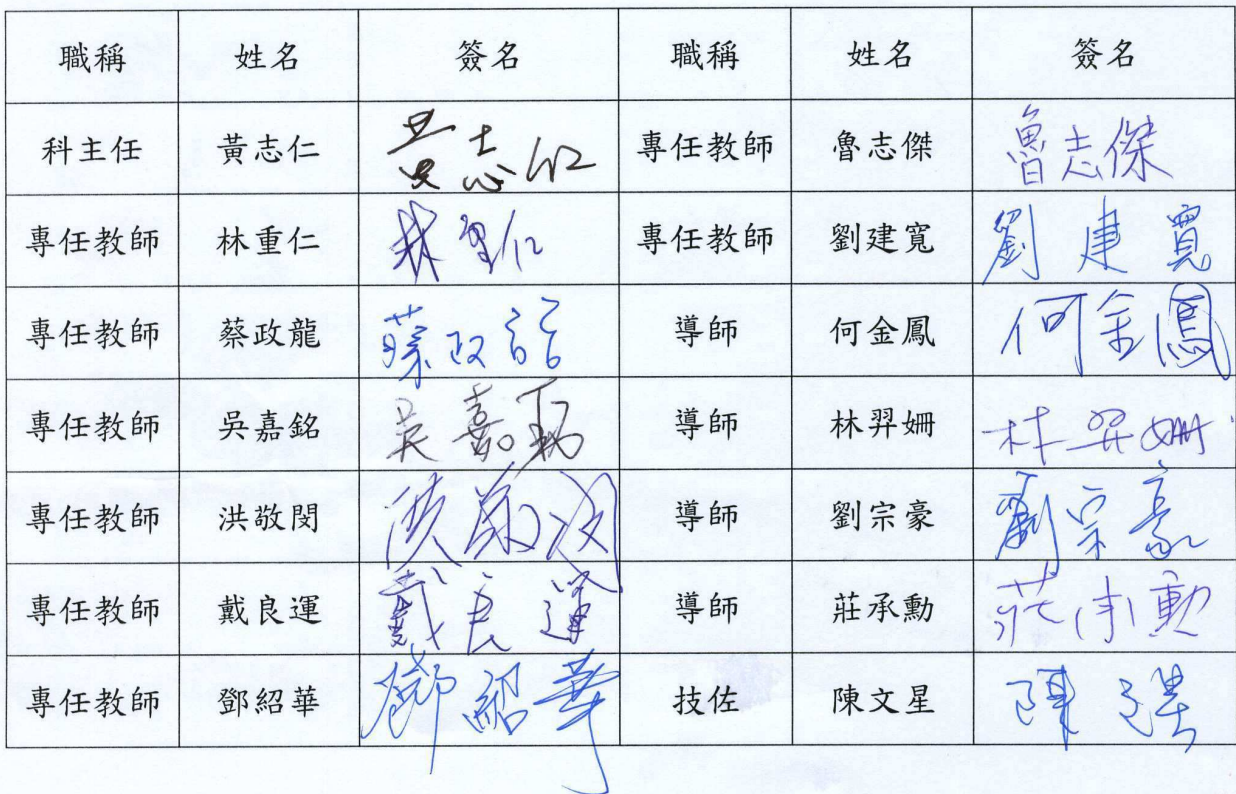 職稱 姓名 簽名 職稱 姓名 簽名
科主任 黃志仁 黃志仁 專任教師 魯志傑 魯志傑
專任教師 林重仁 林重仁 專任教師 劉建寬 劉建寬
專任教師 蔡政龍 蔡政龍 導師 何金鳳 何金鳳
專任教師 吳嘉銘 吳嘉銘 導師 林羿姍 林羿姍
專任教師 洪敬閔 洪敬閔 導師 劉宗豪 劉宗豪
專任教師 戴良運 戴良運 導師 莊承勳 莊承勳
專任教師 鄧紹華 鄧紹華 技佐 陳文星 陳文星